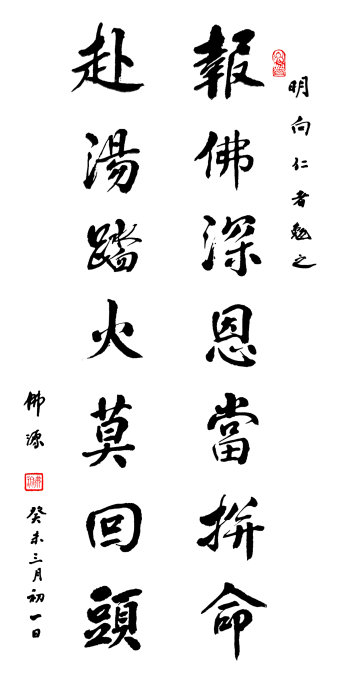 明向仁者勉之
報佛深恩當拚命
赴湯踏火莫回頭
佛源
癸未三月初一日